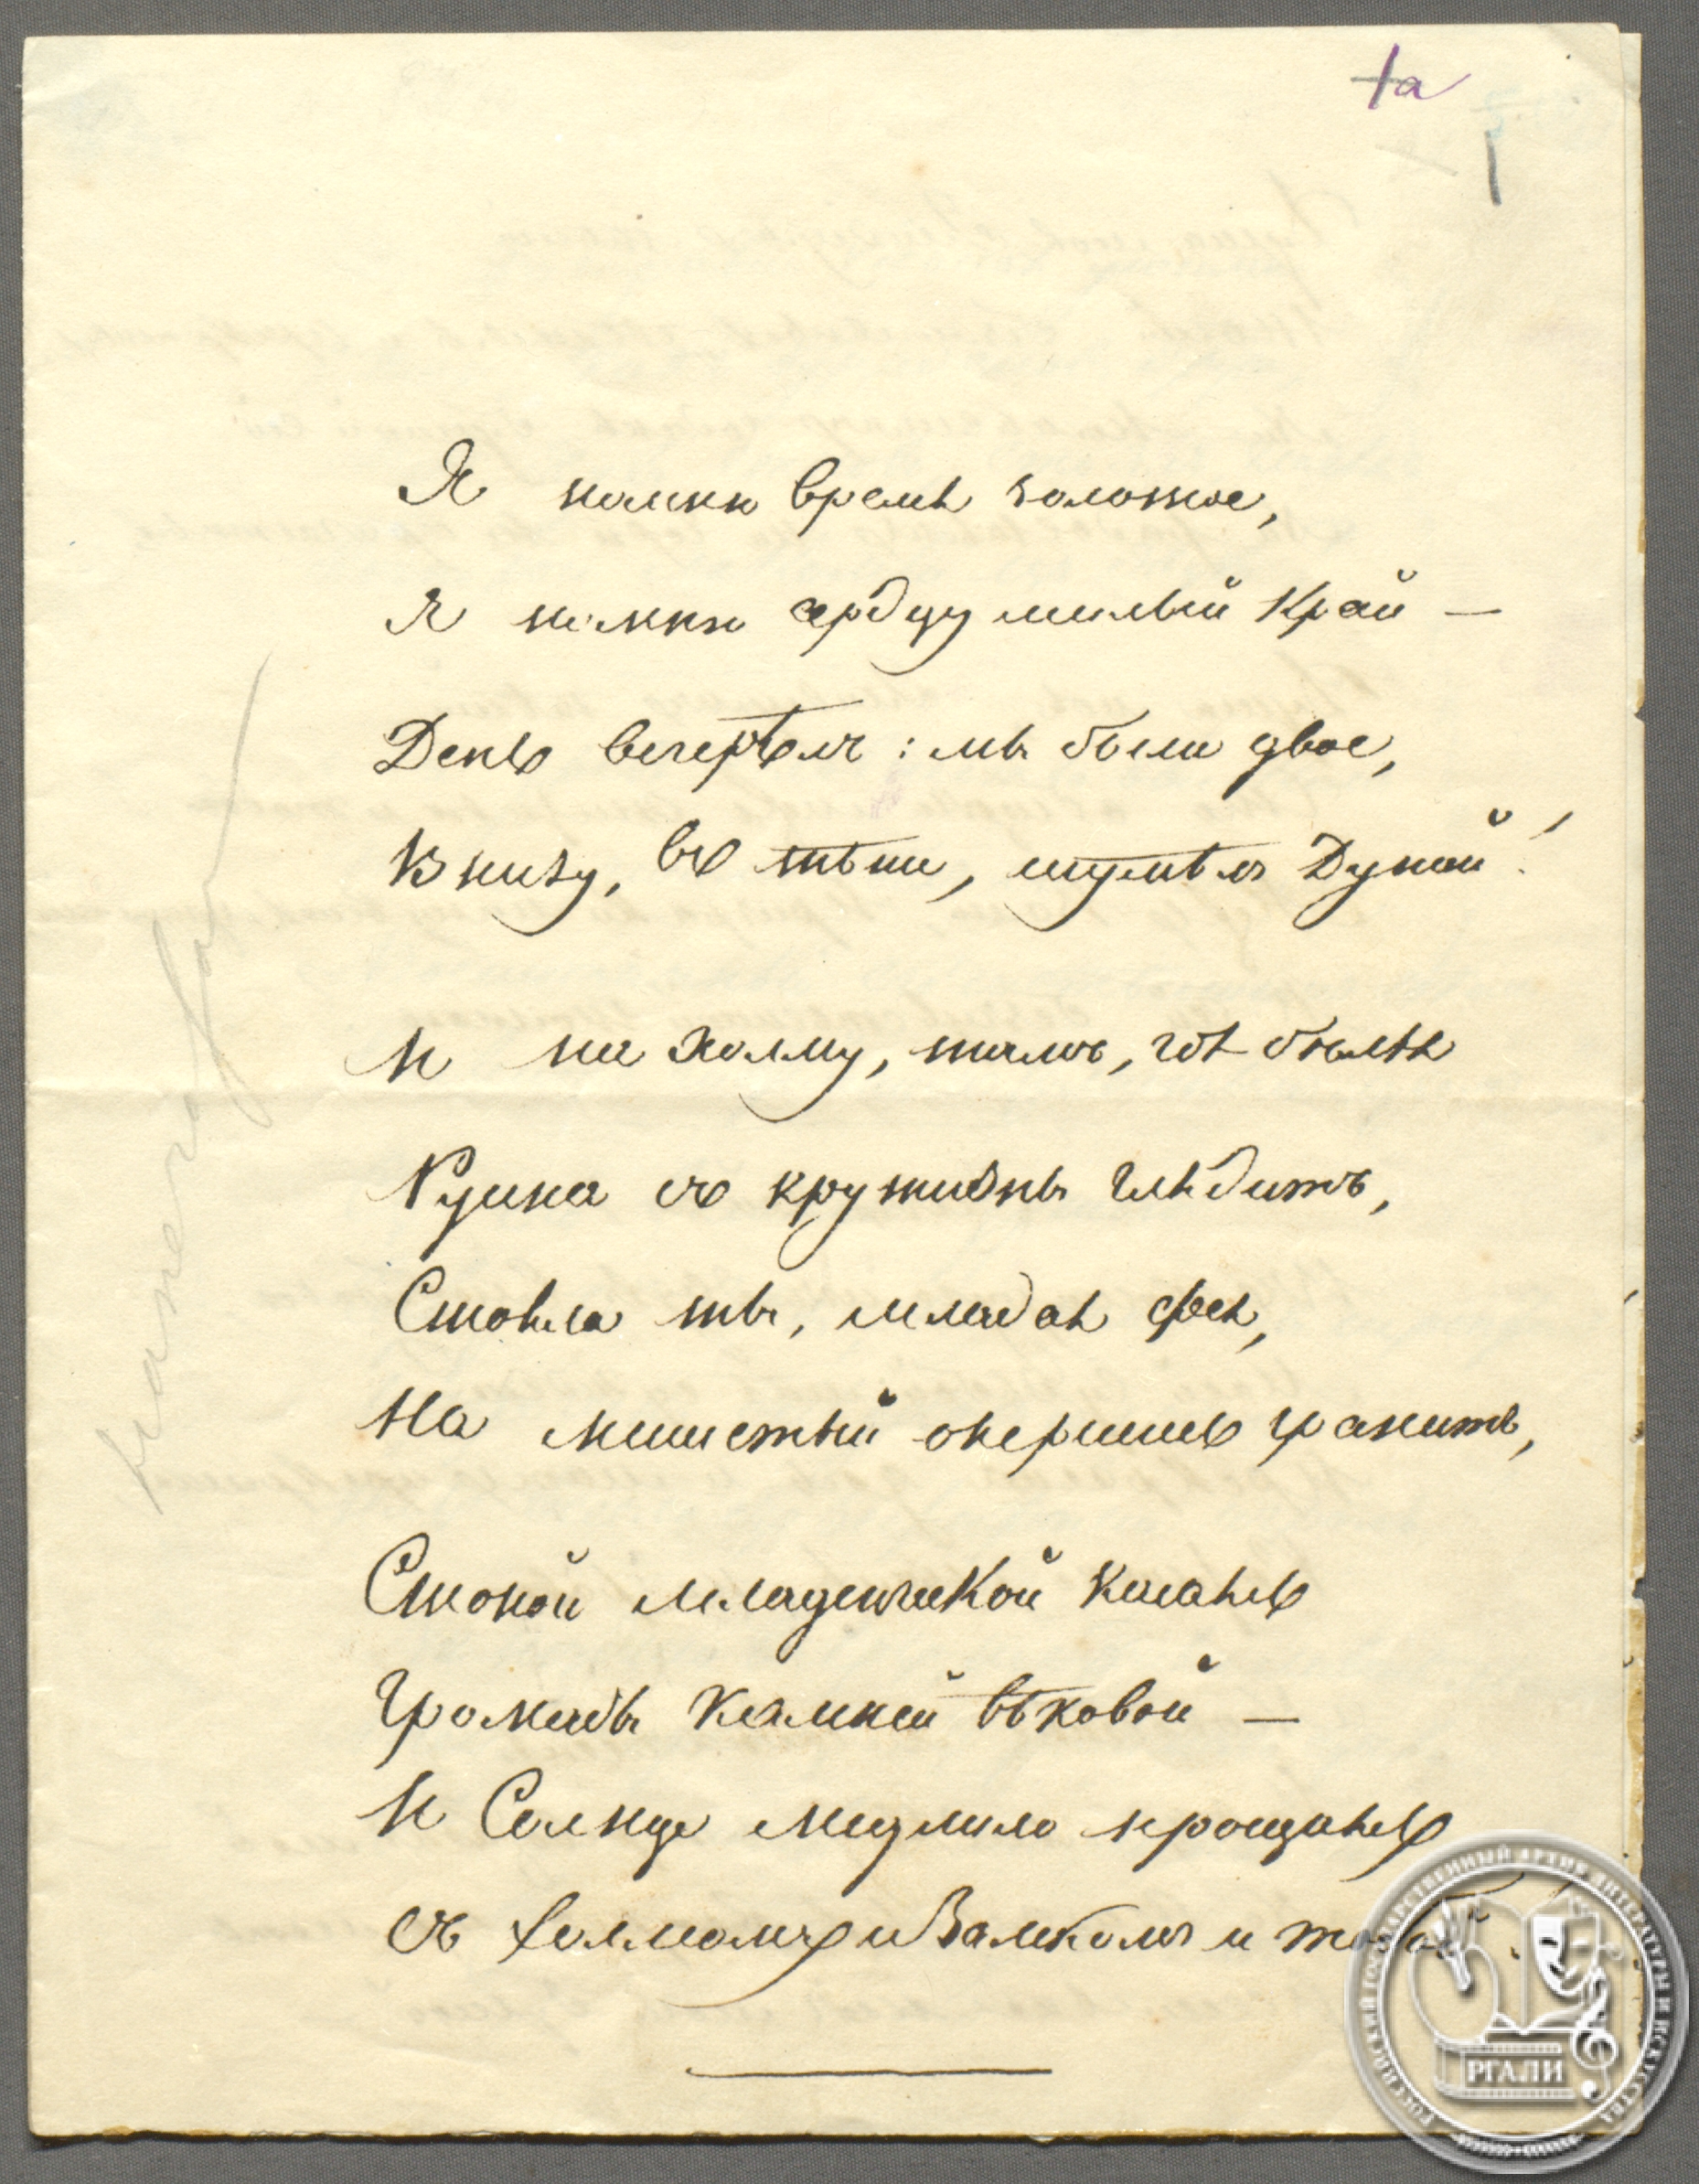 1а
1
Я помню время золотое,
Я помню сердцу милый край —
День вечерѣлъ: мы были двое,
Внизу, въ тѣни, шумѣлъ Дунай!
И на холму, тамъ, гдѣ бѣлѣя
Руина съ крутизны глядитъ,
Стояла ты, младая фея,
На мшистый опершись гранитъ,
Стопой младенческой касаясь
Громады камней вѣковой —
И Солнце медлило прощаясь
Съ холмомъ и Замкомъ и тобой.
напечатан
РОССИЙСКИЙ ГОСУДАРСТВЕННЫЙ АРХИВ ЛИТЕРАТУРЫ И ИСКУССТВА
РГАЛИ